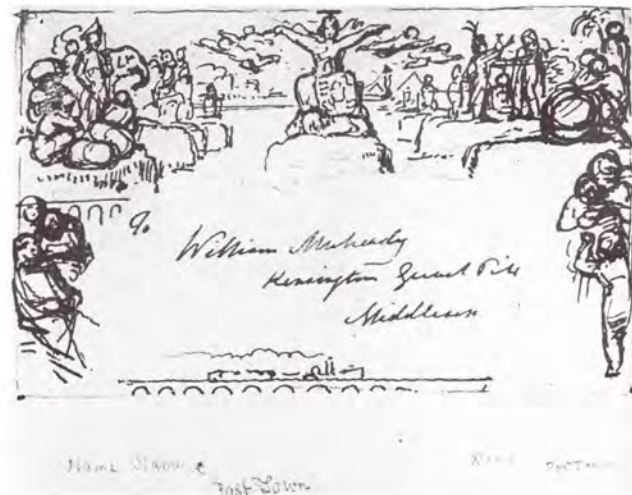 To
William Mulready
Kensington Gravel Pits
Middlesex
Name
Post Town